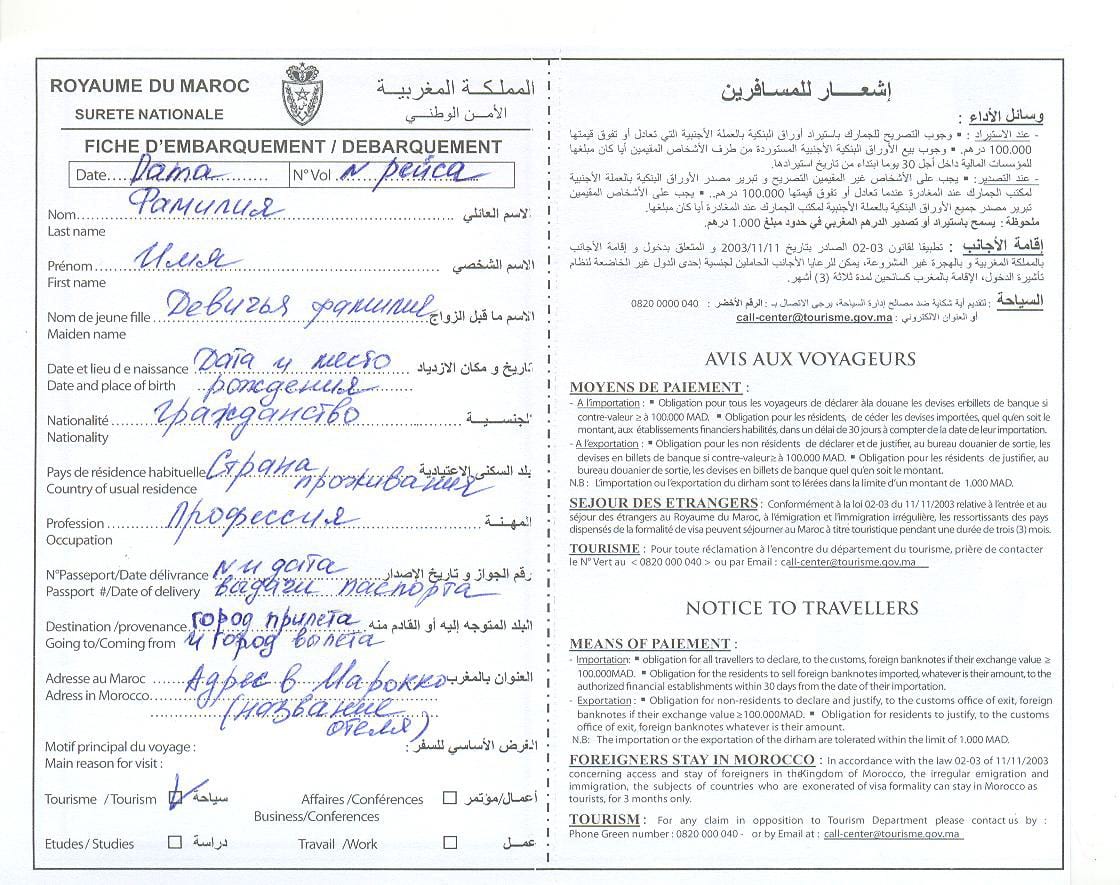 ROYAUME DU MAROC
المملكة المغربية
SURETE NATIONALE
الأمن الوطني
FICHE D'EMBARQUEMENT / DEBARQUEMENT
Date.... Дата ............ N° Vol N рейса
Nom Фамилия الاسم العائلي
Last name
Prénom Имя الاسم الشخصي
First name
Nom de jeune fille Девичья фамилия الاسم ما قبل الزواج
Maiden name
Date et lieu d e naissance Дата и место تاريخ و مكان الازدياد
Date and place of birth рождения
Nationalité Гражданство الجنسية
Nationality
Pays de résidence habituelle Страна بلد السكنى الاعتيادية
Country of usual residence проживания
Profession Профессия المهنة
Occupation
N°Passeport/Date délivrance N и дата رقم الجواز و تاريخ الإصدار
Passport #/Date of delivery выдачи паспорта
Destination /provenance город прилета البلد المتوجه إليه أو القادم منه
Going to/Coming from и город вылета
Adresse au Maroc Адрес в Марокко العنوان بالمغرب
Adress in Morocco
(название
отеля)
Motif principal du voyage : الغرض الأساسي للسفر :
Main reason for visit :
Tourisme / Tourism سياحة Affaires /Conférences أعمال/مؤتمر
Business/Conferences
Etudes / Studies دراسة Travail /Work عمل
إشعار للمسافرين
وسائل الأداء :
- عند الاستيراد : ▪ وجوب التصريح للجمارك باستيراد أوراق البنكية بالعملة الأجنبية التي تعادل أو تفوق قيمتها
100.000 درهم. ▪ وجوب بيع الأوراق البنكية الأجنبية المستوردة من طرف الأشخاص المقيمين أيا كان مبلغها
للمؤسسات المالية داخل أجل 30 يوما ابتداء من تاريخ استيرادها.
- عند التصدير: ▪ يجب على الأشخاص غير المقيمين التصريح و تبرير مصدر الأوراق البنكية بالعملة الأجنبية
لمكتب الجمارك عند المغادرة عندما تعادل أو تفوق قيمتها 100.000 درهم. ▪ يجب على الأشخاص المقيمين
تبرير مصدر جميع الأوراق البنكية بالعملة الأجنبية لمكتب الجمارك عند المغادرة أيا كان مبلغها.
ملحوظة : يسمح باستيراد أو تصدير الدرهم المغربي في حدود مبلغ 1.000 درهم.
إقامة الأجانب : تطبيقا لقانون 02-03 الصادر بتاريخ 2003/11/11 و المتعلق بدخول و إقامة الأجانب
بالمملكة المغربية و بالهجرة غير المشروعة، يمكن للرعايا الأجانب الحاملين لجنسية إحدى الدول غير الخاضعة لنظام
تأشيرة الدخول، الإقامة بالمغرب كسائحين لمدة ثلاثة (3) أشهر.
السياحة : لتقديم أية شكاية ضد مصالح إدارة السياحة، يرجى الاتصال بـ : الرقم الأخضر : 0820 0000 040
أو العنوان الالكتروني : call-center@tourisme.gov.ma
AVIS AUX VOYAGEURS
MOYENS DE PAIEMENT :
- A l'importation : ▪ Obligation pour tous les voyageurs de déclarer àla douane les devises enbillets de banque si
contre-valeur ≥ à 100.000 MAD. ▪ Obligation pour les résidents, de céder les devises importées, quel qu'en soit le
montant, aux établissements financiers habilités, dans un délai de 30 jours à compter de la date de leur importation.
- A l'exportation : ▪ Obligation pour les non résidents de déclarer et de justifier, au bureau douanier de sortie, les
devises en billets de banque si contre-valeur≥ à 100.000 MAD. ▪ Obligation pour les résidents de justifier, au
bureau douanier de sortie, les devises en billets de banque quel qu'en soit le montant.
N.B : L'importation ou l'exportation du dirham sont to lérées dans la limite d'un montant de 1.000 MAD.
SEJOUR DES ETRANGERS : Conformément à la loi 02-03 du 11/ 11/2003 relative à l'entrée et au
séjour des étrangers au Royaume du Maroc, à l'émigration et l'immigration irrégulière, les ressortissants des pays
dispensés de la formalité de visa peuvent séjourner au Maroc à titre touristique pendant une durée de trois (3) mois.
TOURISME : Pour toute réclamation à l'encontre du département du tourisme, prière de contacter
le N° Vert au < 0820 0000 040 > ou par Email : call-center@tourisme.gov.ma
NOTICE TO TRAVELLERS
MEANS OF PAIEMENT :
- Importation: ▪ obligation for all travellers to declare, to the customs, foreign banknotes if their exchange value ≥
100.000MAD. ▪ Obligation for the residents to sell foreign banknotes imported, whatever is their amount, to the
authorized financial establishments within 30 days from the date of their importation.
- Exportation : ▪ Obligation for non-residents to declare and justify, to the customs office of exit, foreign
banknotes if their exchange value ≥100.000MAD. ▪ Obligation for residents to justify, to the customs
office of exit, foreign banknotes whatever is their amount.
N.B: The importation or the exportation of the dirham are tolerated within the limit of 1.000 MAD.
FOREIGNERS STAY IN MOROCCO : In accordance with the law 02-03 of 11/11/2003
concerning access and stay of foreigners in theKingdom of Morocco, the irregular emigration and
immigration, the subjects of countries who are exonerated of visa formality can stay in Morocco as
tourists, for 3 months only.
TOURISM : For any claim in opposition to Tourism Department please contact us by :
Phone Green number : 0820 000 040 - or by Email at : call-center@tourisme.gov.ma